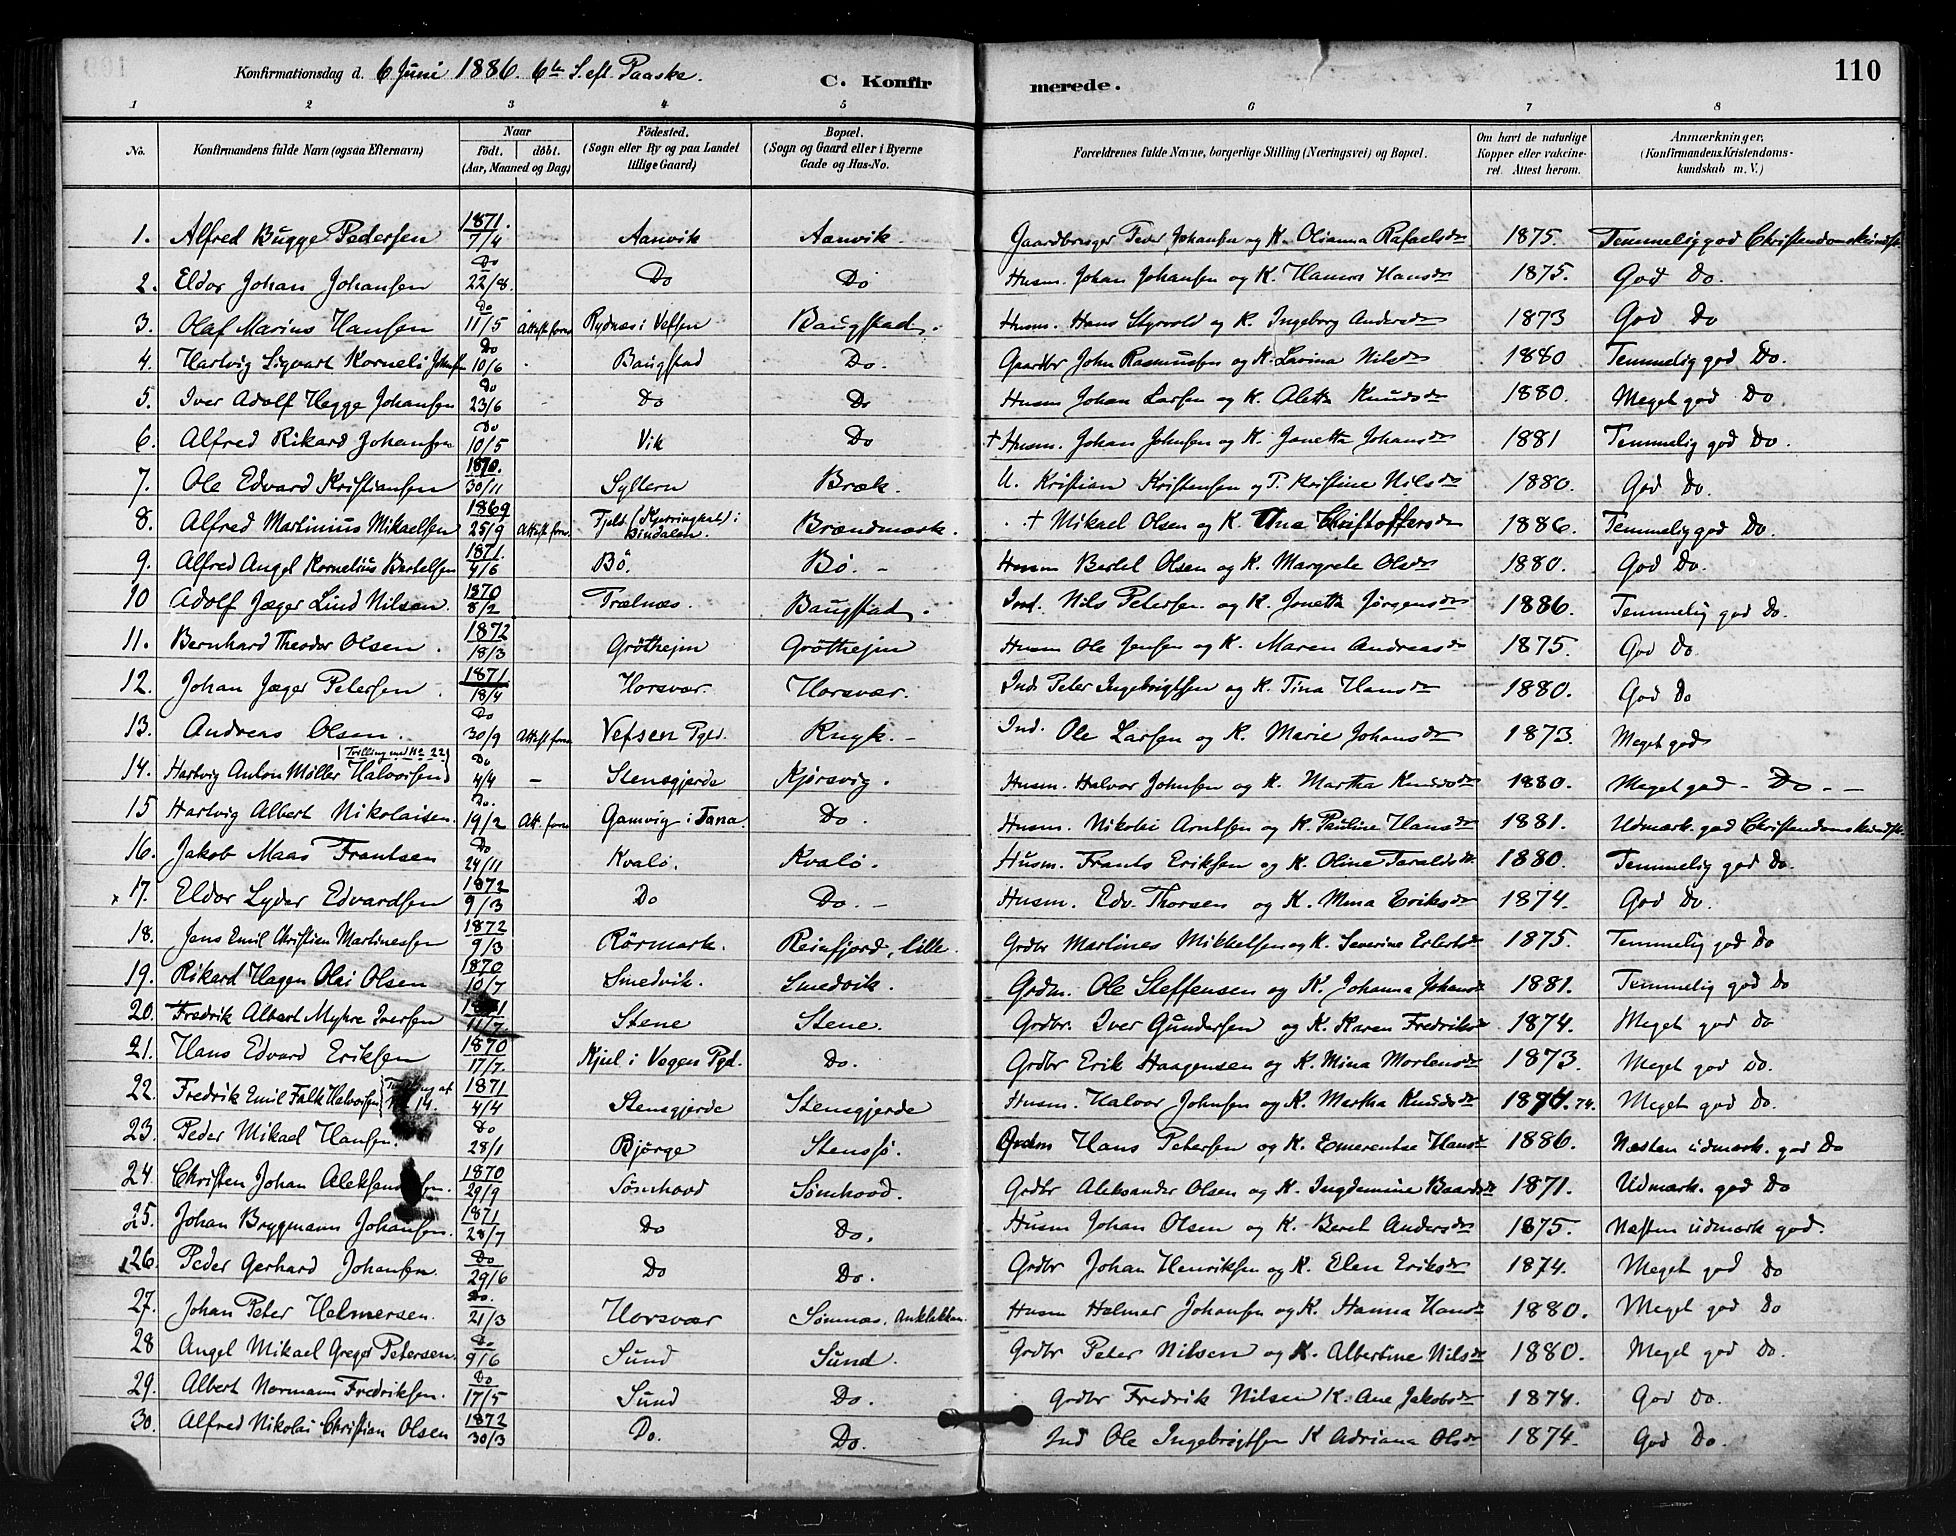 Konfirmationsdag d. 6 Juni 1886. 6te S. eft. Paaske.
C. Konfirmerede.
110
1 2 3 4 5 6 7 8
No. | Konfirmandens fulde Navn (ogsaa Efternavn) | Naar født. døbt. (Aar, Maaned og Dag) | Fødested. (Sogn eller By og paa Landet tillige Gaard) | Bopæl. (Sogn og Gaard eller i Byerne Gade og Hus-No. | Forældrenes fulde Navne, borgerlige Stilling (Næringsvei) og Bopæl. | Om havt de naturlige Kopper eller vakcineret. Attest herom. | Anmærkninger, (Konfirmandens Kristendomskundskab m. V.)
1. Alfred Bugge Pedersen 1871. 7/4 Aanvik Aanvik. Gaardbruger Peder Johansen og K. Olianna Rafaelsdr 1875. Temmelig god Christendomskundsk.
2. Eldor Johan Johansen Do 22/8. Do Do Husm. Johan Johansen og K. Hansdr 1875. God Do.
3. Olaf Marius Hansen Do 11/5 Attest forev. Rydnæs i Vefsen Baugstad. Husm. Hans Styrvold og K. Ingeborg Andersdr 1873 God Do
4. Hartvig Sigvart Korneli Johnsen Do 10/6 Baugstad Do. Gaardbr John Rasmussen og K. Lovina Nilsdr 1880 Temmelig god Do.
5. Iver Adolf Hegge Johansen Do 23/6 - Do Do Husm Johan Larsen og K. Aletta Knudsdr 1880. Meget god Do.
6. Alfred Rikard Johansen Do 10/5 Vik Do + Husm. Johan Johnsen og K. Janetta Johansdr 1881 Temmelig god Do.
7. Ole Edvard Kristiansen 1870. 30/11 Syltern Bræk. U. Kristian Kristensen og P. Kristine Nilsdr 1880. God Do.
8. Alfred Martinius Mikaelsen 1869 25/9 Attest forev. Fjeld (Kjerringhals) i Bindalen. Brændmark. + Mikael Olsen og K. Ane Christoffersdr 1886. Temmelig god Do.
9. Alfred Angel Kornelius Bertelsen 1871. 4/6 Bö. Bö. - Husm Bertel Olsen og K. Margrete Olsdr 1880. God Do.
10 Adolf Jæger Lind Nilsen. 1870 8/2 Trælnæs. Baugstad. Ind. Nils Petersen og K. Jonetta Jørgensdr 1886. Temmelig god Do.
11. Bernhard Theodor Olsen. 1872 18/3 Gröthejm Gröthejm Husm Ole Jensen og K. Maren Andreasdr 1875. God Do.
12. Johan Jæger Petersen. 1871 18/4 Horsvær. Horsvær. Ind. Peter Ingebrigtsen og K. Tina Hansdr 1880. God Do
13. Andreas Olsen. Do 30/9 Attest forev. Vefsen Pgld. Kuyk. - Ind. Ole Larsen og K. Marie Johansdr 1873. Meget god
14. Hartvig Anton Møller Halvorsen (Trilling med No 22) Do 4/4 - Stensgjerde Kjørsvig. Husm. Halvor Johnsen og K. Martha Knudsdr 1880. Meget god - Do. -
15 Hartvig Albert Nikolaisen. Do. 19/2 Att. forev. Gamvig i Tana. Do. Husm. Nikolai Arntsen og K. Pauline Hansdr 1881. Udmærk. god Christendomskundsk.
16. Jakob Maas Frantsen Do 24/11 Kvalø. Kvalø. Husm. Frants Eriksen og K. Oline Taraldsdr. 1880. Temmelig god Do.
x 17. Eldor Lyder Edvardsen 1872 9/3 Do Do. - Husm. Edv. Thorsen og K. Mina Eriksdr 1874. God Do.
18. Jens Emil Christian Martinessen 1872 9/3 Rörmark. Reinfjord, lille. Grdbr Martines Mikkelsen og K. Severine Erlertsdr 1875. Temmelig god Do
19. Rikard Hagen Olai Olsen 1870 10/7 Smedvik. Smedvik. Grdm. Ole Steffensen og K. Johanna Johansdr 1881. Temmelig god Do
20. Fredrik Albert Myhre Iversen 1871 11/7. Stene Stene. Grdbr. Iver Gundersen og K. Karen Fredriksdr 1874. Meget god Do
21. Hans Edvard Eriksen 1870 17/7. Kjul i Vegen Pgd. Do. Grdbr Erik Haagensen og K. Mina Mortensdr 1873. Meget god Do.
22. Fredrik Emil Falk Halvorsen (Trilling af No 14. 1871 4/4 Stensgjerde Stensgjerde Husm. Halvor Johnsen og K. Martha Knudsdr 1874. 74. Meget god Do.
23. Peder Mikael Hansen. Do 28/1 Bjørge Stenssø. Grdm Hans Petersen og K. Emerentse Hansdr 1886. Næsten udmærk. god Do
24. Christen Johan Aleksandersen. 1870 29/9 Sømhovd Sømhovd. Grdbr Aleksander Olsen og K. Ingdemine Baardsdr 1871. Udmærk. god Do
25. Johan Brygmann Johansen. 1871 28/7 Do Do. Husm Johan Olsen og K. Beret Andersdr 1875. Næsten udmærk god.
26. Peder Gerhard Johansen. Do 29/6 Do Do. Grdbr Johan Henriksen og K. Elen Eriksdr 1874. Meget god Do
27. Johan Peter Helmersen. Do. 21/3 Horsvær Sømnæs, Anklakken. Husm Helmer Johansen og K. Hanna Hansdr 1880. Meget god Do
28 Angel Mikael Greger Petersen. Do 9/6 Sund Sund. Grdbr Peter Nilsen og K. Albertine Nilsdr 1880. Meget god Do.
29. Albert Normann Fredriksen. Do 17/5 Sund Do. Grdbr Fredrik Nilsen K. Ane Jakobsdr 1874. God Do.
30. Alfred Nikolai Christian Olsen 1872 30/3 Do. Do. Ind Ole Ingebrigtsen K Adriana Olsdr 1874. God Do.